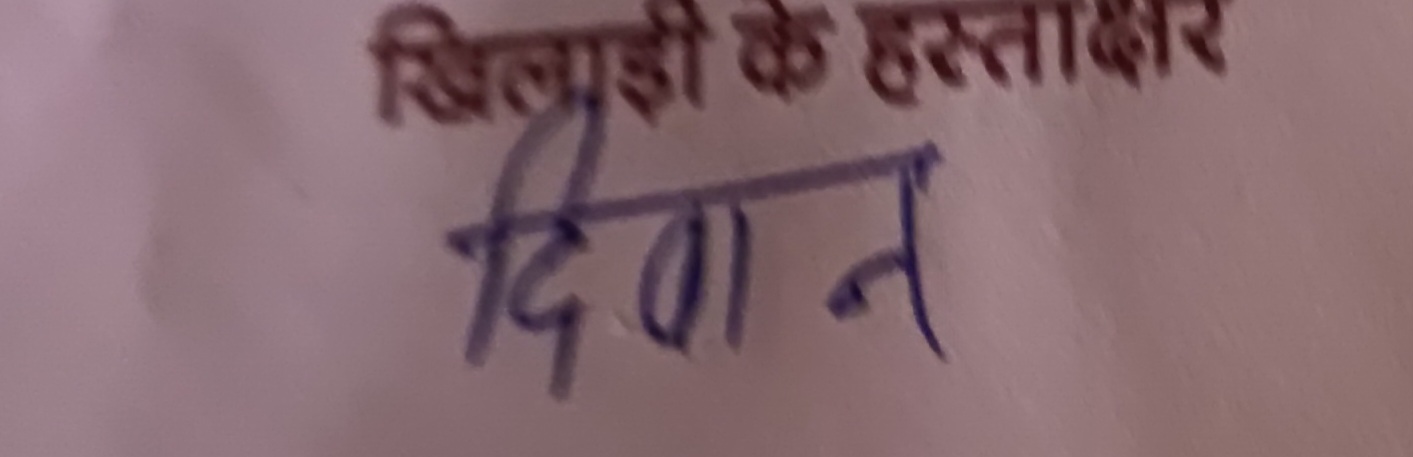 खिलाड़ी के हस्ताक्षर
दिवान